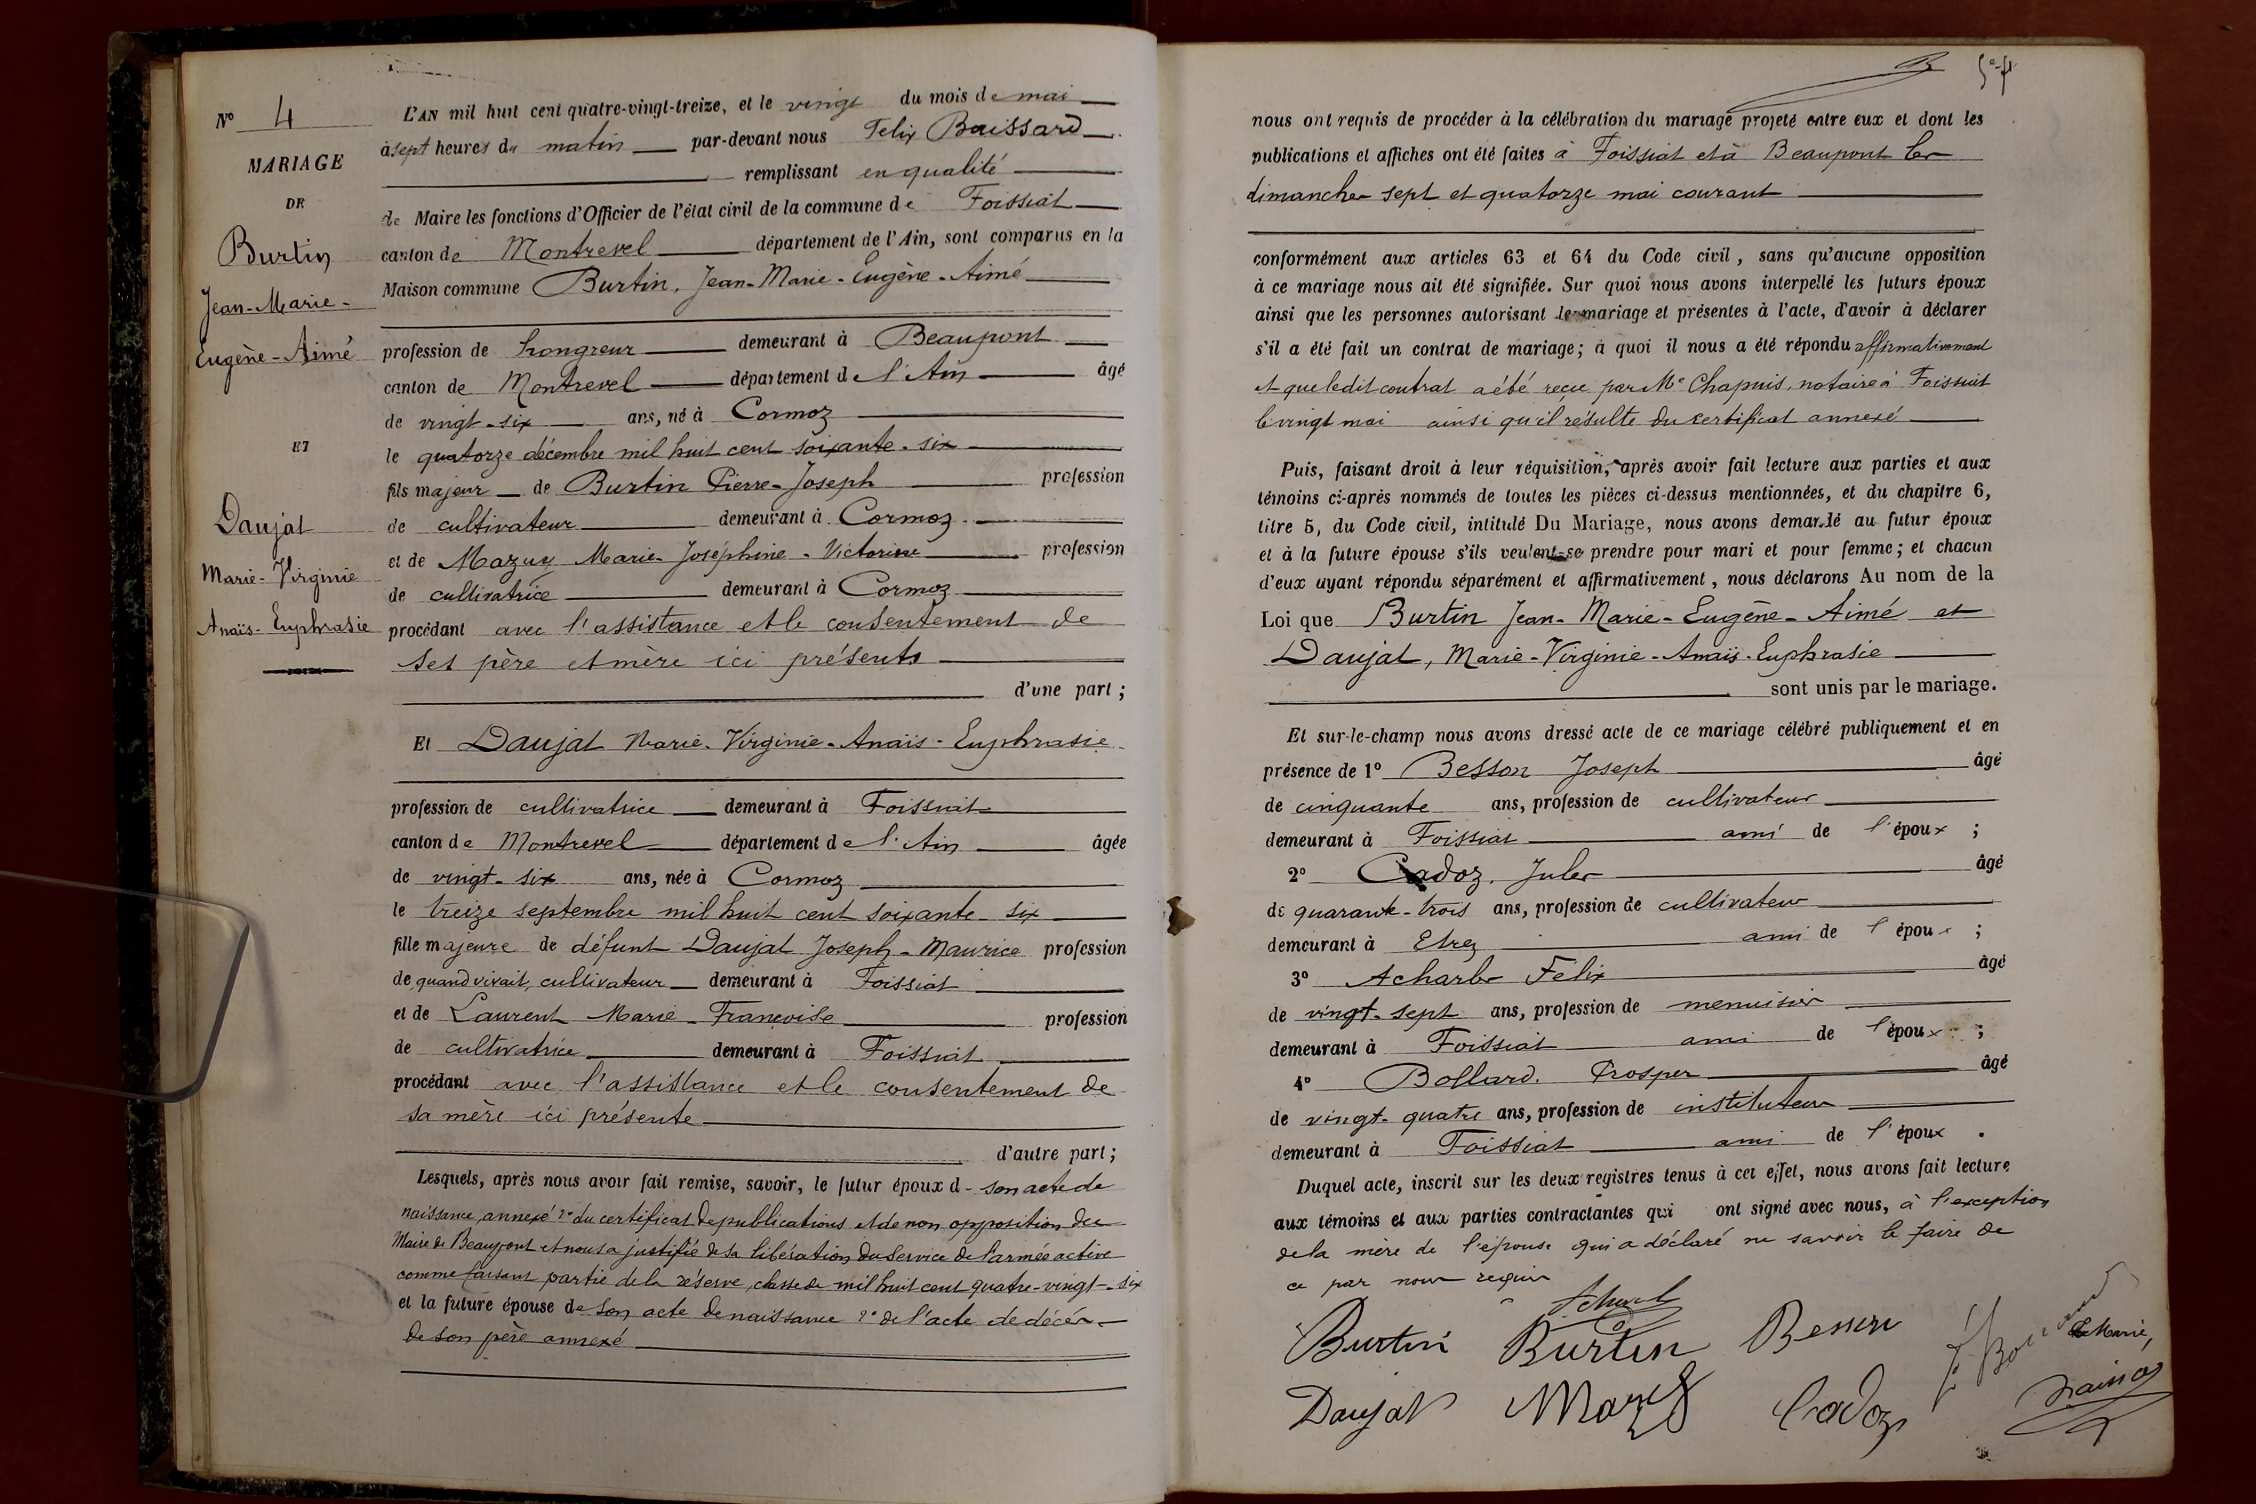 N° 4
MARIAGE
DE
Burtin
Jean-Marie-
Eugène-Aimé
ET
Daujat
Marie-Virginie
Anaïs-Euphrasie
L'AN mil huit cent quatre-vingt-treize, et le vingt du mois de mai
à sept heures du matin par-devant nous Felix Boissard
remplissant en qualité
de Maire les fonctions d'Officier de l'état civil de la commune de Foissiat
canton de Montrevel département de l'Ain, sont comparus en la
Maison commune Burtin, Jean-Marie-Eugène-Aimé
profession de hongreur demeurant à Beaupont
canton de Montrevel département de l'Ain âgé
de vingt-six ans, né à Cormoz
le quatorze décembre mil huit cent soixante-six
fils majeur de Burtin Pierre-Joseph profession
de cultivateur demeurant à Cormoz
et de Mazuy Marie-Joséphine-Victorine profession
de cultivatrice demeurant à Cormoz
procédant avec l'assistance et le consentement de
ses père et mère ici présents
d'une part ;
Et Daujat Marie-Virginie-Anaïs-Euphrasie
profession de cultivatrice demeurant à Foissiat
canton de Montrevel département de l'Ain âgée
de vingt-six ans, née à Cormoz
le treize septembre mil huit cent soixante-six
fille majeure de défunt Daujat Joseph-Maurice profession
de, quand vivait, cultivateur demeurant à Foissiat
et de Laurent Marie-Françoise profession
de cultivatrice demeurant à Foissiat
procédant avec l'assistance et le consentement de
sa mère ici présente
d'autre part ;
Lesquels, après nous avoir fait remise, savoir, le futur époux d- son acte de
naissance, annexé 2° du certificat de publications et de non opposition du
Maire de Beaupont et nous a justifié de sa libération du service de l'armée active
comme faisant partie de la réserve, classe de mil huit cent quatre-vingt-six
et la future épouse de son acte de naissance 2° de l'acte de décès
de son père annexé
nous ont requis de procéder à la célébration du mariage projeté entre eux et dont les
publications et affiches ont été faites à Foissiat et à Beaupont les
dimanches sept et quatorze mai courant
conformément aux articles 63 et 64 du Code civil, sans qu'aucune opposition
à ce mariage nous ait été signifiée. Sur quoi nous avons interpellé les futurs époux
ainsi que les personnes autorisant le mariage et présentes à l'acte, d'avoir à déclarer
s'il a été fait un contrat de mariage ; à quoi il nous a été répondu affirmativement
et que ledit contrat a été reçu par Me Chapuis, notaire à Foissiat
le vingt mai ainsi qu'il résulte du certificat annexé
Puis, faisant droit à leur réquisition, après avoir fait lecture aux parties et aux
témoins ci-après nommés de toutes les pièces ci-dessus mentionnées, et du chapitre 6,
titre 5, du Code civil, intitulé Du Mariage, nous avons demandé au futur époux
et à la future épouse s'ils veulent se prendre pour mari et pour femme ; et chacun
d'eux ayant répondu séparément et affirmativement, nous déclarons Au nom de la
Loi que Burtin Jean-Marie-Eugène-Aimé et
Daujat, Marie-Virginie-Anaïs-Euphrasie
sont unis par le mariage.
Et sur-le-champ nous avons dressé acte de ce mariage célébré publiquement et en
présence de 1° Besson Joseph âgé
de cinquante ans, profession de cultivateur
demeurant à Foissiat ami de l'époux ;
2° Cadoz, Jules âgé
de quarante-trois ans, profession de cultivateur
demeurant à Etrez ami de l'époux ;
3° Acharles Felix âgé
de vingt-sept ans, profession de menuisier
demeurant à Foissiat ami de l'époux ;
4° Bollard, Prosper âgé
de vingt-quatre ans, profession de instituteur
demeurant à Foissiat ami de l'époux .
Duquel acte, inscrit sur les deux registres tenus à cet effet, nous avons fait lecture
aux témoins et aux parties contractantes qui ont signé avec nous, à l'exception
de la mère de l'épouse qui a déclaré ne savoir le faire de
ce par nous requise
Burtin Burtin Besson
Le Maire,
Daujat Mazuy Cadoz